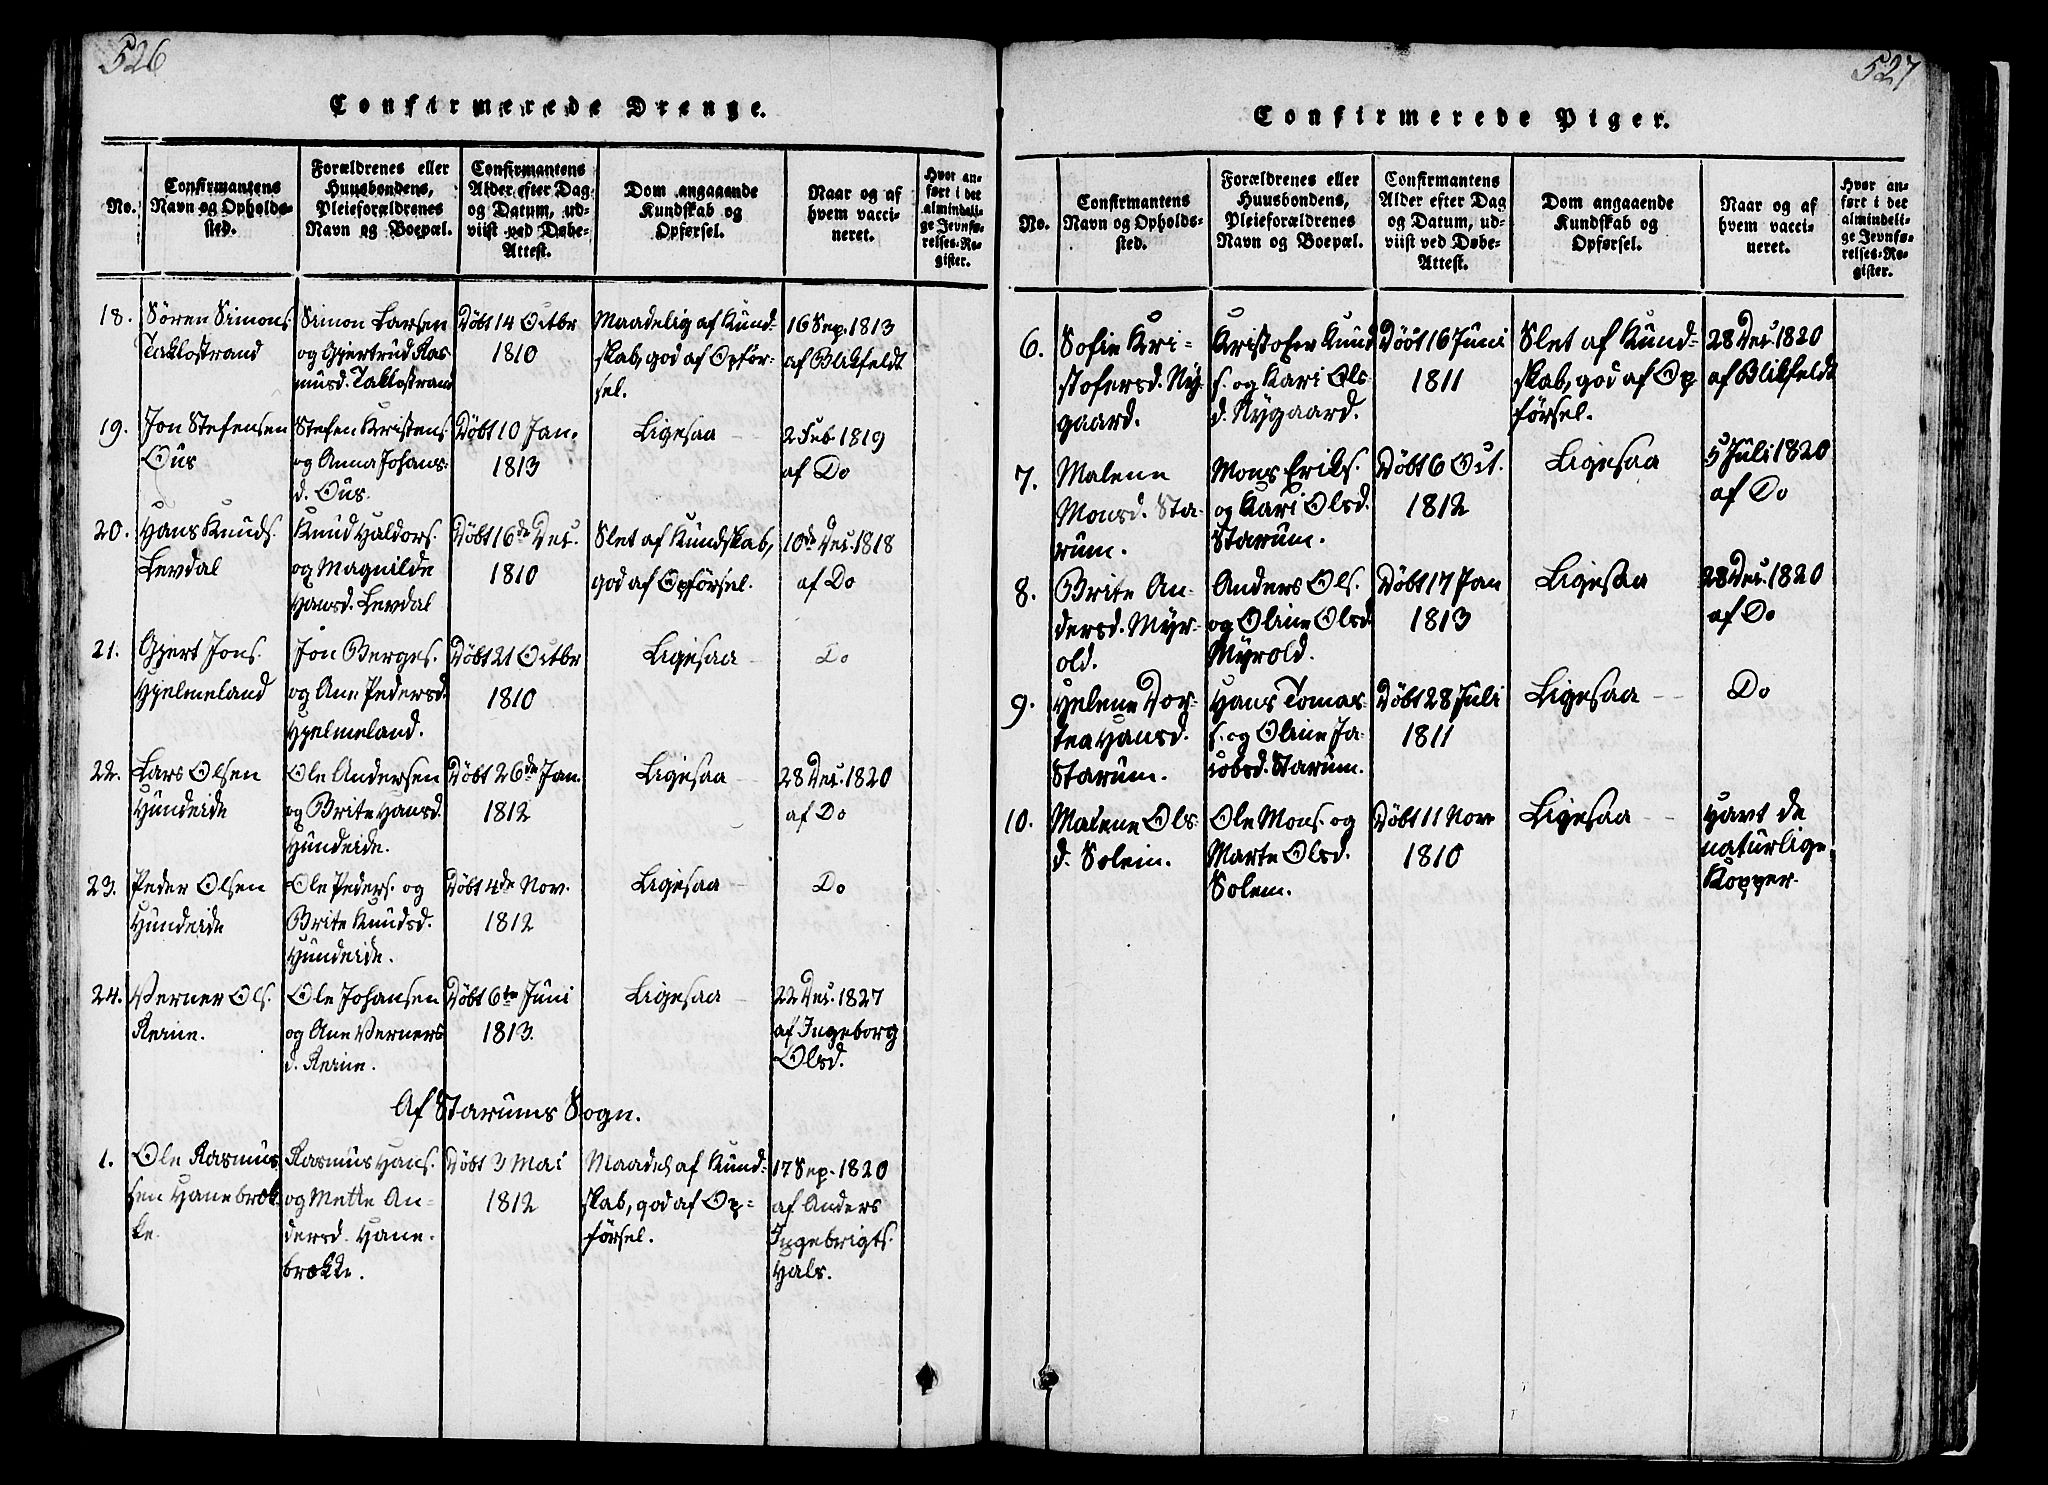 526
Confirmerede Drenge.
No.
Confirmantens
Navn og Opholds-
sted.
Forældrenes eller
Huusbondens,
Pleieforældrenes
Navn og Boepæl.
Confirmantens
Alder efter Dag
og Datum, ud-
viist ved Døbe-
Attest.
Dom angaaende
Kundskab og
Opførsel.
Naar og af
hvem vacci-
neret.
Hvor an-
ført i det
almindeli-
ge Jevnfø-
relses-Re-
gister.
18.
Sören Simons.
Taklostrand
Simon Larsen
og Gjertrud Ras
musd. Taklostrand
Döbt 14 Octbr
1810
Maadelig af Kund-
skab, god af Opför-
sel.
16 Sep. 1813
af Blikfeldt
19.
Jon Stefensen
Ous
Stefen Kristens.
og Anna Johans-
d. Ous.
Döbt 10 Jan.
1813
Ligesaa
2 Feb. 1819
af Do
20.
Hans Knuds.
Levdal
Knud Haldors.
og Magnilde
Hansd. Levdal
Döbt 16de Dec.
1810
Slet af Kundskab,
god af Opförsel.
10de Dec. 1818
af Do
21.
Gjert Jons.
Hjelmeland
Jon Berges.
og Ane Pedersd.
Hjelmeland.
Döbt 21 Octbr
1810
Ligesaa
Do
22.
Lars Olsen
Hundeide
Ole Andersen
og Brite Hansd.
Hundeide.
Döbt 26de Jan.
1812
Ligesaa
28 Dec. 1820
af Do
23.
Peder Olsen
Hundeide
Ole Peders. og
Brite Knudsd.
Hundeide.
Döbt 4de Nov.
1812
Ligesaa
Do
24.
Verner Ols.
Ole Johansen
og Ane Verners
d.
Döbt 6te Juni
1813.
Ligesaa
22 Dec. 1827
af Ingeborg
Olsd.
Af Starums Sogn.
1.
Ole Rasmus
sen Hanebræk
ke.
Rasmus Hans.
og Mette An-
dersd. Hane-
brække.
Döbt 3 Mai
1812
Maadel. af Kund-
skab, god af Op-
försel.
17 Sep. 1820
af Anders
Ingebrigts.
Hals.
527
Confirmerede Piger.
No.
Confirmantens
Navn og Opholds-
sted.
Forældrenes eller
Huusbondens,
Pleieforældrenes
Navn og Boepæl.
Confirmantens
Alder efter Dag
og Datum, ud-
viist ved Døbe-
Attest.
Dom angaaende
Kundskab og
Opførsel.
Naar og af
hvem vacci-
neret.
Hvor an-
ført i det
almindeli-
ge Jevnfø-
relses-Re-
gister.
6.
Sofie Kri-
stofersd. Ny-
gaard.
Kristofer Knud
s. og Kari Ols
d. Nygaard.
Döbt 16 Juni
1811
Slet af Kund-
skab, god af Op
försel.
28 Dec. 1820
af Blikfeldt
7.
Malene
Monsd. Sta-
rum.
Mons Eriks.
og Kari Olsd.
Starum.
Döbt 6 Oct.
1812
Ligesaa
5 Juli 1820
af Do
8.
Brite An-
dersd. Myr-
old.
Anders Ols.
og Oline Olsd
Myrold.
Döbt 17 Jan
1813
Ligesaa
28 Dec. 1820
af Do
9.
Helene Dor-
tea Hansd.
Starum.
Hans Tomas-
s. og Oline Ja-
cobsd. Starum.
Döbt 28 Juli
1811
Ligesaa
Do
10.
Malene Ols-
d. Solem.
Ole Mons. og
Marte Olsd.
Solem.
Döbt 11 Nov
1810
Ligesaa
Havt de
naturlige
Kopper.